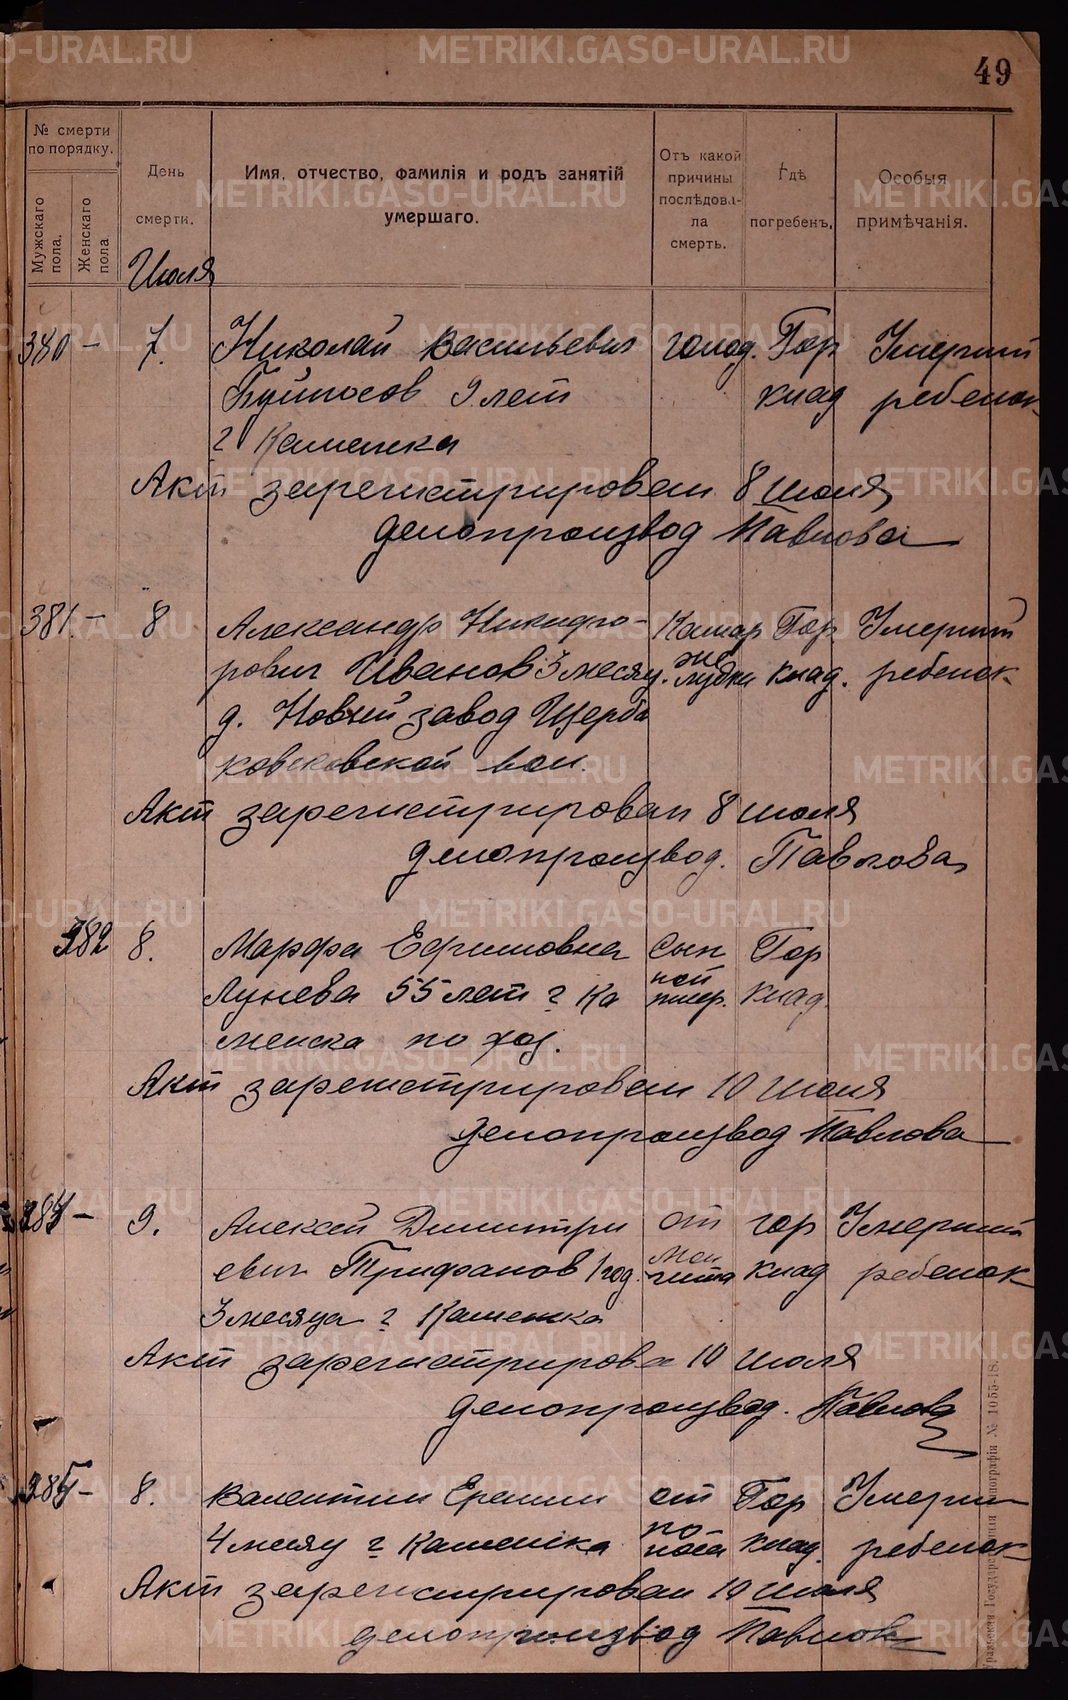 METRIKI.GASO-URAL.RU
49
№ смерти по порядку.
Мужскаго пола.
Женскаго пола
День смерти.
Имя, отчество, фамилія и родъ занятій умершаго.
Отъ какой причины послѣдовала смерть.
Гдѣ погребенъ.
Особыя примѣчанія.
Июля
380 – 7. Николай Васильевич голод. Гор Умерший
9 лет клад ребенок
г Каменска
Акт зарегистрирован 8 июля
делопроизвод Павлова
381 – 8 Александр Никифо- Катар Гор Умерший
рович Иванов 3 месяц. желудка клад. ребенок
д. Новый завод Щерба
ковской вол.
Акт зарегистрирован 8 июля
делопроизвод. Павлова
382 8. Марфа Ефимовна Сып Гор
Лунева 55 лет г Ка ной тиф. клад.
менска по хоз.
Акт зарегистрирован 10 июля
делопроизвод Павлова
9. Алексей Димитри от гор Умерший
евич Трифанов 1 год. мен гита клад ребенок
3 месяца г Каменска
Акт зарегистрирова 10 июля
делопроизвод. Павлова
8. Валентин Еремин от Гор Умерши
4 месяц г Каменска по носа клад. ребенок
Акт зарегистрирован 10 июля
делопроизвод Павлова
Уральская Государственная типографія № 1055-18.